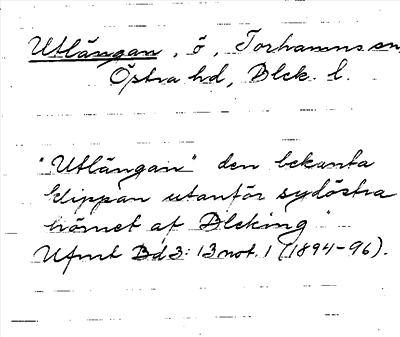 Utlängan, ö, Torhamns sn,
Östra hd, Blek. l.
"Utlängan" den bekanta
klippan utanför sydöstra
hörnet af Bleking"
Ufmt Bd 3: 13 not. 1 (1894-96).